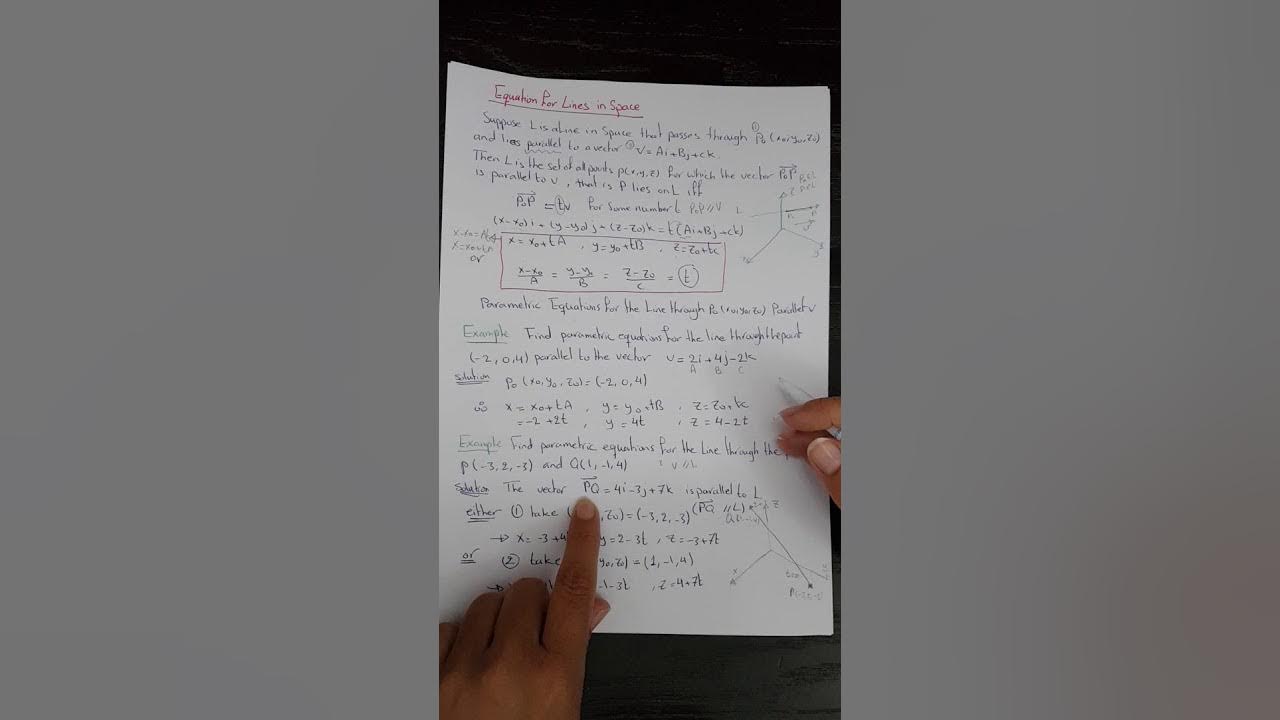 Equation for Lines in Space
Suppose L is a Line in Space that passes through ① P₀(x₀,y₀,z₀)
and lies parallel to a vector ② v = Ai+Bj+ck.
Then L is the set of all points p(x,y,z) for which the vector P₀P
is parallel to v, that is P lies on L iff
P₀P = tv for some number t P₀P // v
(x-x₀)i + (y-y₀)j + (z-z₀)k = t(Ai+Bj+ck)
x = x₀+tA , y = y₀+tB , z = z₀+tc
or
x-x₀/A = y-y₀/B = z-z₀/C = t
Parametric Equations for the Line through P₀(x₀,y₀,z₀) Parallel v
Example Find parametric equations for the line through the point
(-2, 0, 4) parallel to the vector v = 2i + 4j - 2k
A B C
solution P₀(x₀,y₀,z₀) = (-2, 0, 4)
∴ x = x₀+tA , y = y₀+tB , z = z₀+tc
= -2+2t , y = 4t , z = 4-2t
Example Find parametric equations for the Line through the
P(-3,2,-3) and Q(1,-1,4) v // L
Solution The vector PQ = 4i-3j+7k is parallel to L
either ① take , z₀) = (-3, 2, -3) (PQ // L)
→ x = -3+4 y = 2-3t , z = -3+7t
or ② take y₀, z₀) = (1, -1, 4)
→ -1-3t , z = 4+7t
L
z
x
z
t=0